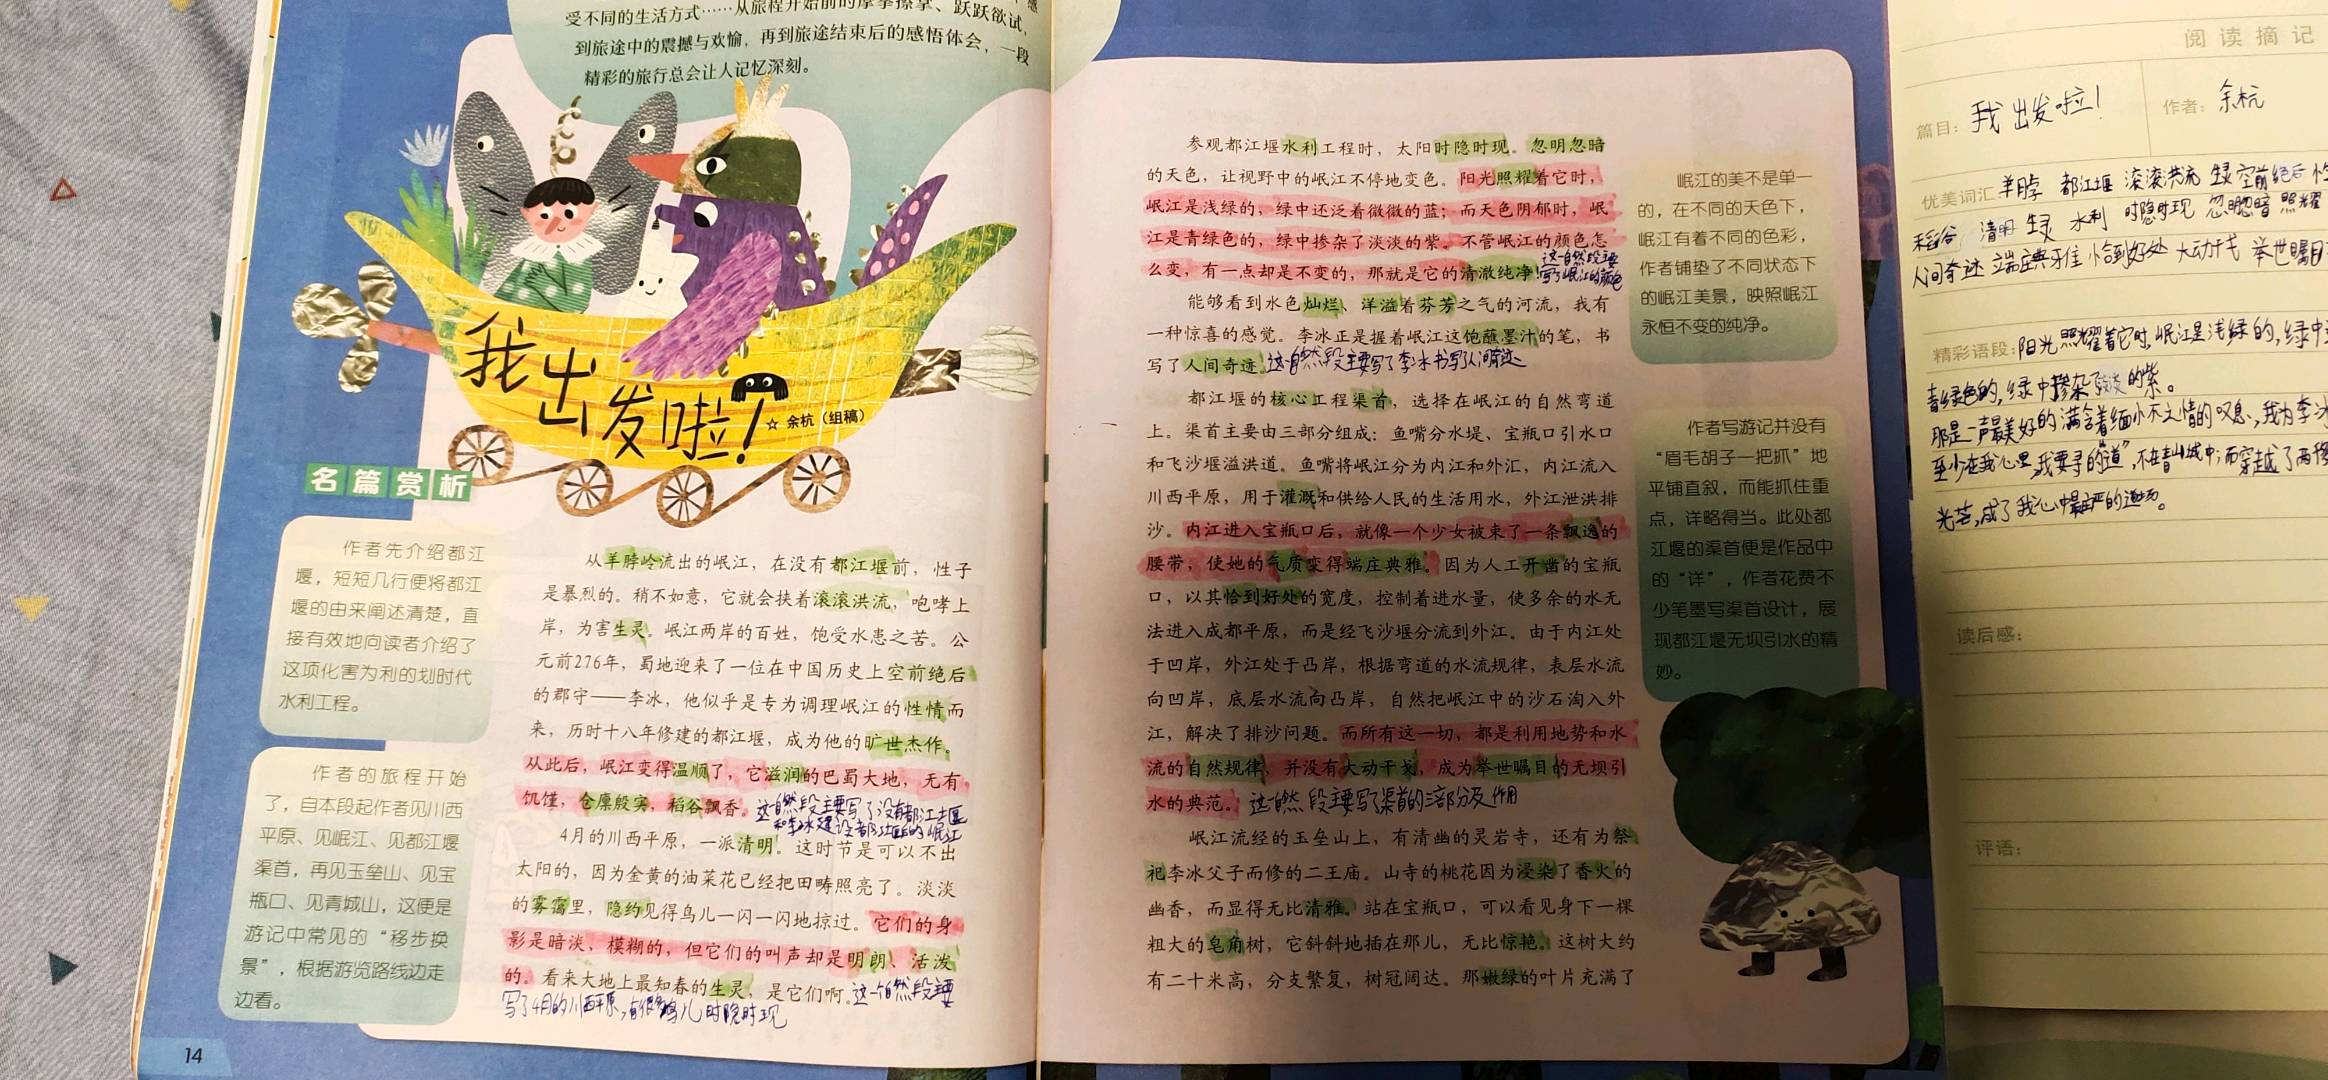 受不同的生活方式……从旅程开始前的摩拳擦掌、跃跃欲试，
到旅途中的震撼与欢愉，再到旅途结束后的感悟体会，一段
精彩的旅行总会让人记忆深刻。
我出发啦！
☆ 余杭（组稿）
名篇赏析
作者先介绍都江
堰，短短几行便将都江
堰的由来阐述清楚，直
接有效地向读者介绍了
这项化害为利的划时代
水利工程。
作者的旅程开始
了，自本段起作者见川西
平原、见岷江、见都江堰
渠首，再见玉垒山、见宝
瓶口、见青城山，这便是
游记中常见的“移步换
景”，根据游览路线边走
边看。
从羊膊岭流出的岷江，在没有都江堰前，性子
是暴烈的。稍不如意，它就会挟着滚滚洪流，咆哮上
岸，为害生灵。岷江两岸的百姓，饱受水患之苦。公
元前276年，蜀地迎来了一位在中国历史上空前绝后
的郡守——李冰，他似乎是专为调理岷江的性情而
来，历时十八年修建的都江堰，成为他的旷世杰作。
从此后，岷江变得温顺了，它滋润的巴蜀大地，无有
饥馑，仓廪殷实，稻谷飘香。这自然段主要写了没有都江堰
和李冰建设都江堰后的岷江
4月的川西平原，一派清明。这时节是可以不出
太阳的，因为金黄的油菜花已经把田畴照亮了。淡淡
的雾霭里，隐约见得鸟儿一闪一闪地掠过。它们的身
影是暗淡、模糊的，但它们的叫声却是明朗、活泼
的。看来大地上最知春的生灵，是它们啊。这一个自然段主要
写了4月的川西平原，有很多鸟儿时隐时现
14
参观都江堰水利工程时，太阳时隐时现。忽明忽暗
的天色，让视野中的岷江不停地变色。阳光照耀着它时，
岷江是浅绿的，绿中还泛着微微的蓝；而天色阴郁时，岷
江是青绿色的，绿中掺杂了淡淡的紫。不管岷江的颜色怎
么变，有一点却是不变的，那就是它的清澈纯净！这一自然段主要
写了岷江的颜色
能够看到水色灿烂、洋溢着芬芳之气的河流，我有
一种惊喜的感觉。李冰正是握着岷江这饱蘸墨汁的笔，书
写了人间奇迹。这自然段主要写了李冰书写人间奇迹
都江堰的核心工程渠首，选择在岷江的自然弯道
上。渠首主要由三部分组成：鱼嘴分水堤、宝瓶口引水口
和飞沙堰溢洪道。鱼嘴将岷江分为内江和外江，内江流入
川西平原，用于灌溉和供给人民的生活用水，外江泄洪排
沙。内江进入宝瓶口后，就像一个少女被束了一条飘逸的
腰带，使她的气质变得端庄典雅。因为人工开凿的宝瓶
口，以其恰到好处的宽度，控制着进水量，使多余的水无
法进入成都平原，而是经飞沙堰分流到外江。由于内江处
于凹岸，外江处于凸岸，根据弯道的水流规律，表层水流
向凹岸，底层水流向凸岸，自然把岷江中的沙石淘入外
江，解决了排沙问题。而所有这一切，都是利用地势和水
流的自然规律，并没有大动干戈，成为举世瞩目的无坝引
水的典范。这自然段主要写了渠首的三部分及作用
岷江流经的玉垒山上，有清幽的灵岩寺，还有为祭
祀李冰父子而修的二王庙。山寺的桃花因为浸染了香火的
幽香，而显得无比清雅。站在宝瓶口，可以看见身下一棵
粗大的皂角树，它斜斜地插在那儿，无比惊艳。这树大约
有二十米高，分支繁复，树冠阔达。那嫩绿的叶片充满了
岷江的美不是单一
的，在不同的天色下，
岷江有着不同的色彩，
作者铺垫了不同状态下
的岷江美景，映照岷江
永恒不变的纯净。
作者写游记并没有
“眉毛胡子一把抓”地
平铺直叙，而能抓住重
点，详略得当。此处都
江堰的渠首便是作品中
的“详”，作者花费不
少笔墨写渠首设计，展
现都江堰无坝引水的精
妙。
阅读摘记
篇目：我出发啦！ 作者：余杭
优美词汇 羊膊 都江堰 滚滚洪流 空前绝后
稻谷 清明 生灵 水利 时隐时现 忽明忽暗 照耀
人间奇迹 端庄典雅 恰到好处 大动干戈 举世瞩目
精彩语段：阳光照耀着它时，岷江是浅绿的，绿中
青绿色的，绿中掺杂了淡淡的紫。
那是一声最美好的满含着缅怀之情的叹息，我为李冰
至少在我心里，我要寻的“道”，不在青山城中，而穿越了两
光芒，成了我心中最庄严的道场。
读后感：
评语：